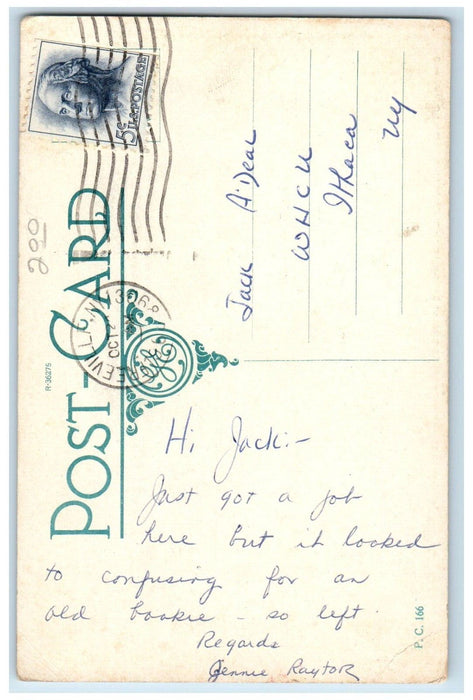 5¢ U.S. POSTAGE
200
POST-CARD
R-36275
13068
OCT
Jack A'Dear
WHCU
Ithaca
NY
Hi Jack:-
Just got a job
here but it looked
to confusing for an
old bookie - so left
Regards
Jennie Raytor
P. C. 166